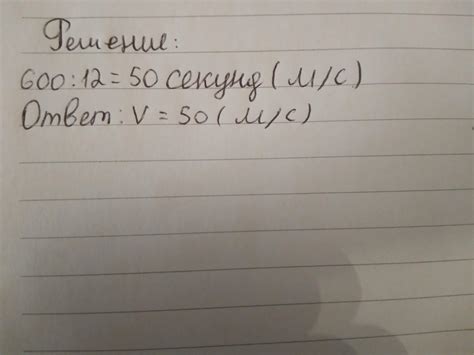 Решение:
600:12=50 секунд (м/с)
Ответ: V = 50 (м/с)